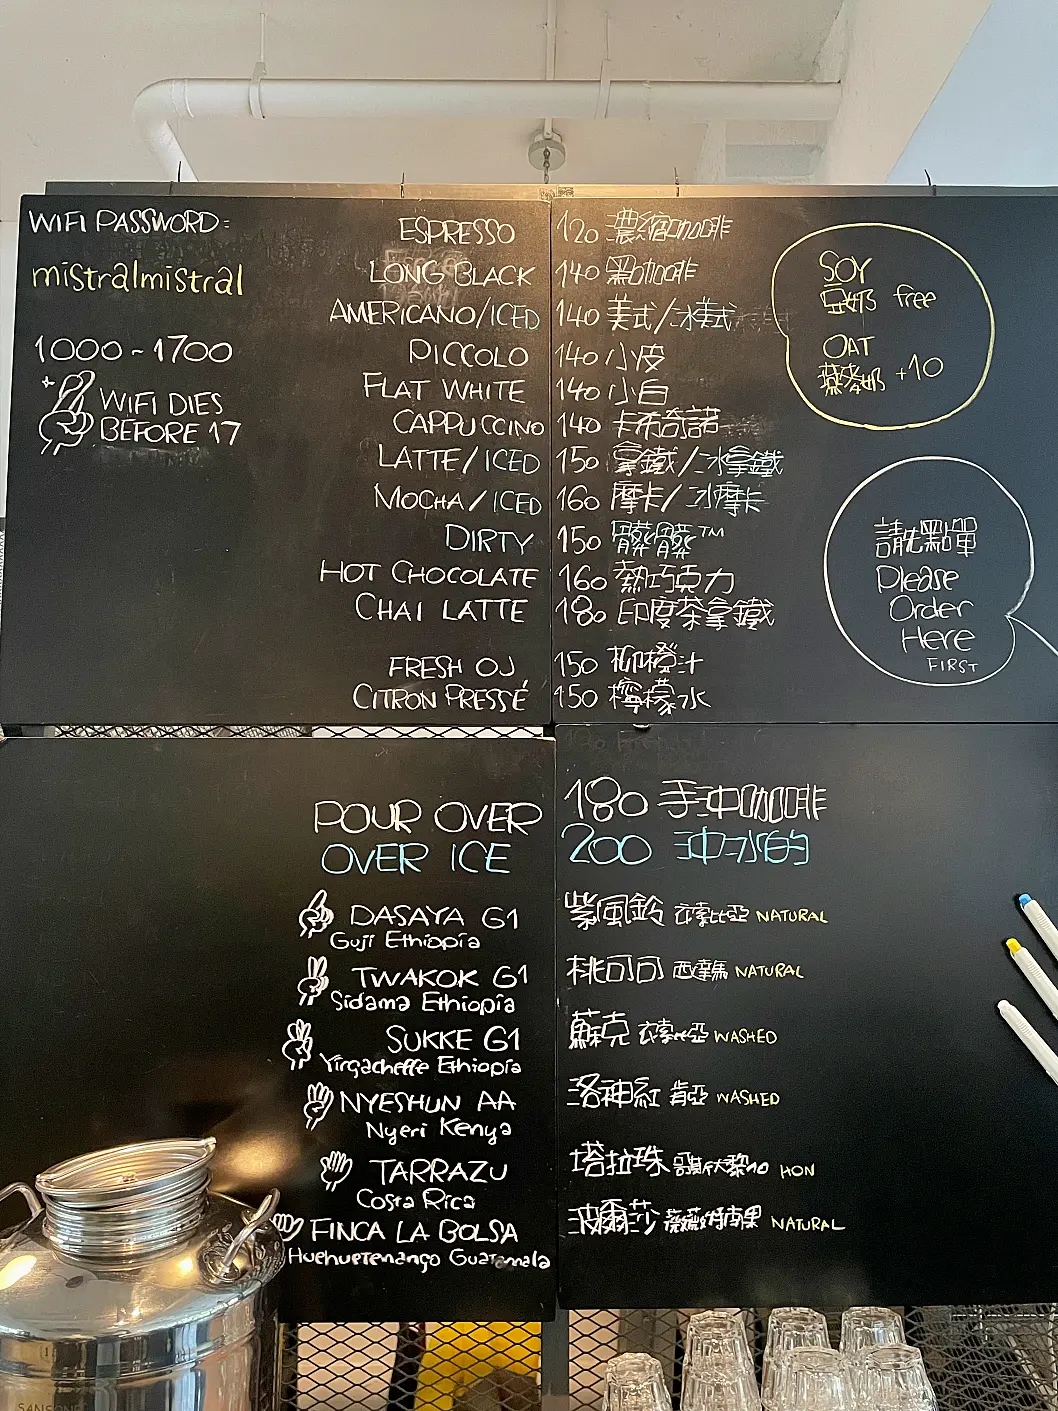 WIFI PASSWORD:
mistralmistral
1000~1700
WIFI DIES
BEFORE 17
ESPRESSO 120 濃縮咖啡
LONG BLACK 140 黑咖啡
AMERICANO/ICED 140 美式/冰美式
PICCOLO 140 小皮
FLAT WHITE 140 小白
CAPPUCCINO 140 卡布奇諾
LATTE/ICED 150 拿鐵/冰拿鐵
MOCHA/ICED 160 摩卡/冰摩卡
DIRTY 150 髒髒™
HOT CHOCOLATE 160 熱巧克力
CHAI LATTE 180 印度茶拿鐵
FRESH OJ 150 柳橙汁
CITRON PRESSÉ 150 檸檬水
SOY
豆奶 free
OAT
燕麥奶 +10
請先點單
Please
Order
Here
FIRST
POUR OVER 180 手沖咖啡
OVER ICE 200 沖冰的
DASAYA G1 紫風鈴 衣索比亞 NATURAL
Guji Ethiopia
TWAKOK G1 桃可可 西達馬 NATURAL
Sidama Ethiopia
SUKKE G1 蘇克 衣索比亞 WASHED
Yirgacheffe Ethiopia
NYESHUN AA 洛神紅 肯亞 WASHED
Nyeri Kenya
TARRAZU 塔拉珠 哥斯大黎加 HON
Costa Rica
FINCA LA BOLSA 波爾莎 薇薇特南果 NATURAL
Huehuetenango Guatemala